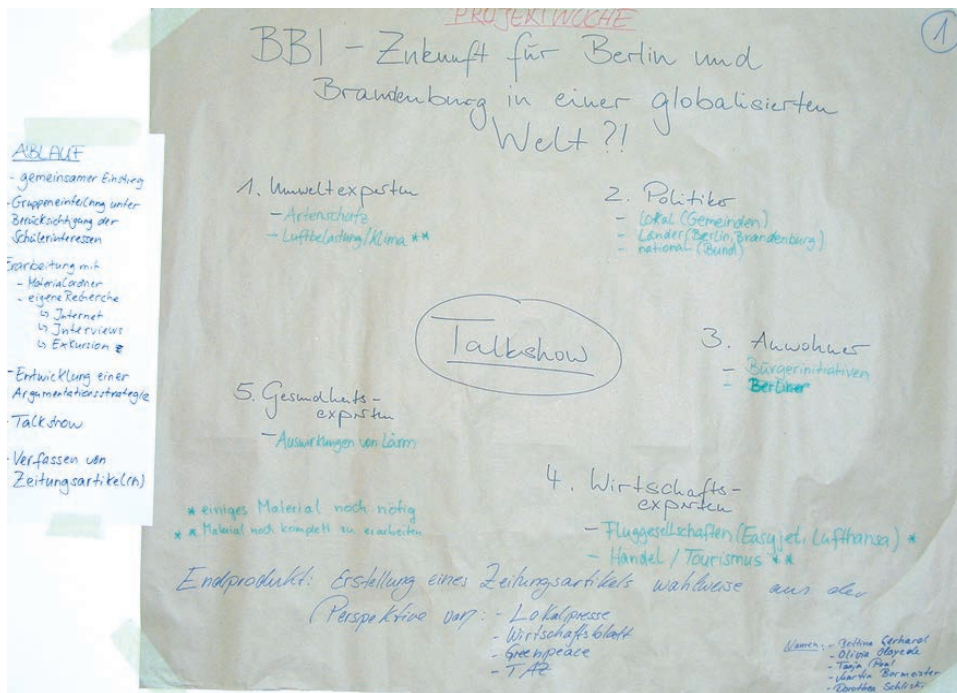 PROJEKTWOCHE
1
BBI - Zukunft für Berlin und
Brandenburg in einer globalisierten
Welt ?!
ABLAUF
- gemeinsamer Einstieg
- Gruppeneinteilung unter
Berücksichtigung der
Schülerinteressen
Erarbeitung mit
- Materialordner
- eigene Recherche
↳ Internet
↳ Interviews
↳ Exkursion
- Entwicklung einer
Argumentationsstrategie
- Talkshow
- Verfassen von
Zeitungsartikel(n)
1. Umweltexperten
- Artenschutz
- Luftbelastung/Klima **
2. Politiker
- lokal (Gemeinden)
- Länder (Berlin, Brandenburg)
- national (Bund)
Talkshow
3. Anwohner
- Bürgerinitiativen
- Berliner
5. Gesundheits-
experten
- Auswirkungen von Lärm
4. Wirtschafts-
experten
- Fluggesellschaften (Easyjet, Lufthansa) *
- Handel / Tourismus **
* einiges Material noch nötig
** Material noch komplett zu erarbeiten
Endprodukt: Erstellung eines Zeitungsartikels wahlweise aus der
Perspektive von: - Lokalpresse
- Wirtschaftsblatt
- Greenpeace
- TAZ
Namen: - Bettina Gerhard
- Olivia
- Tanja
- Burmeister
- Dorothea